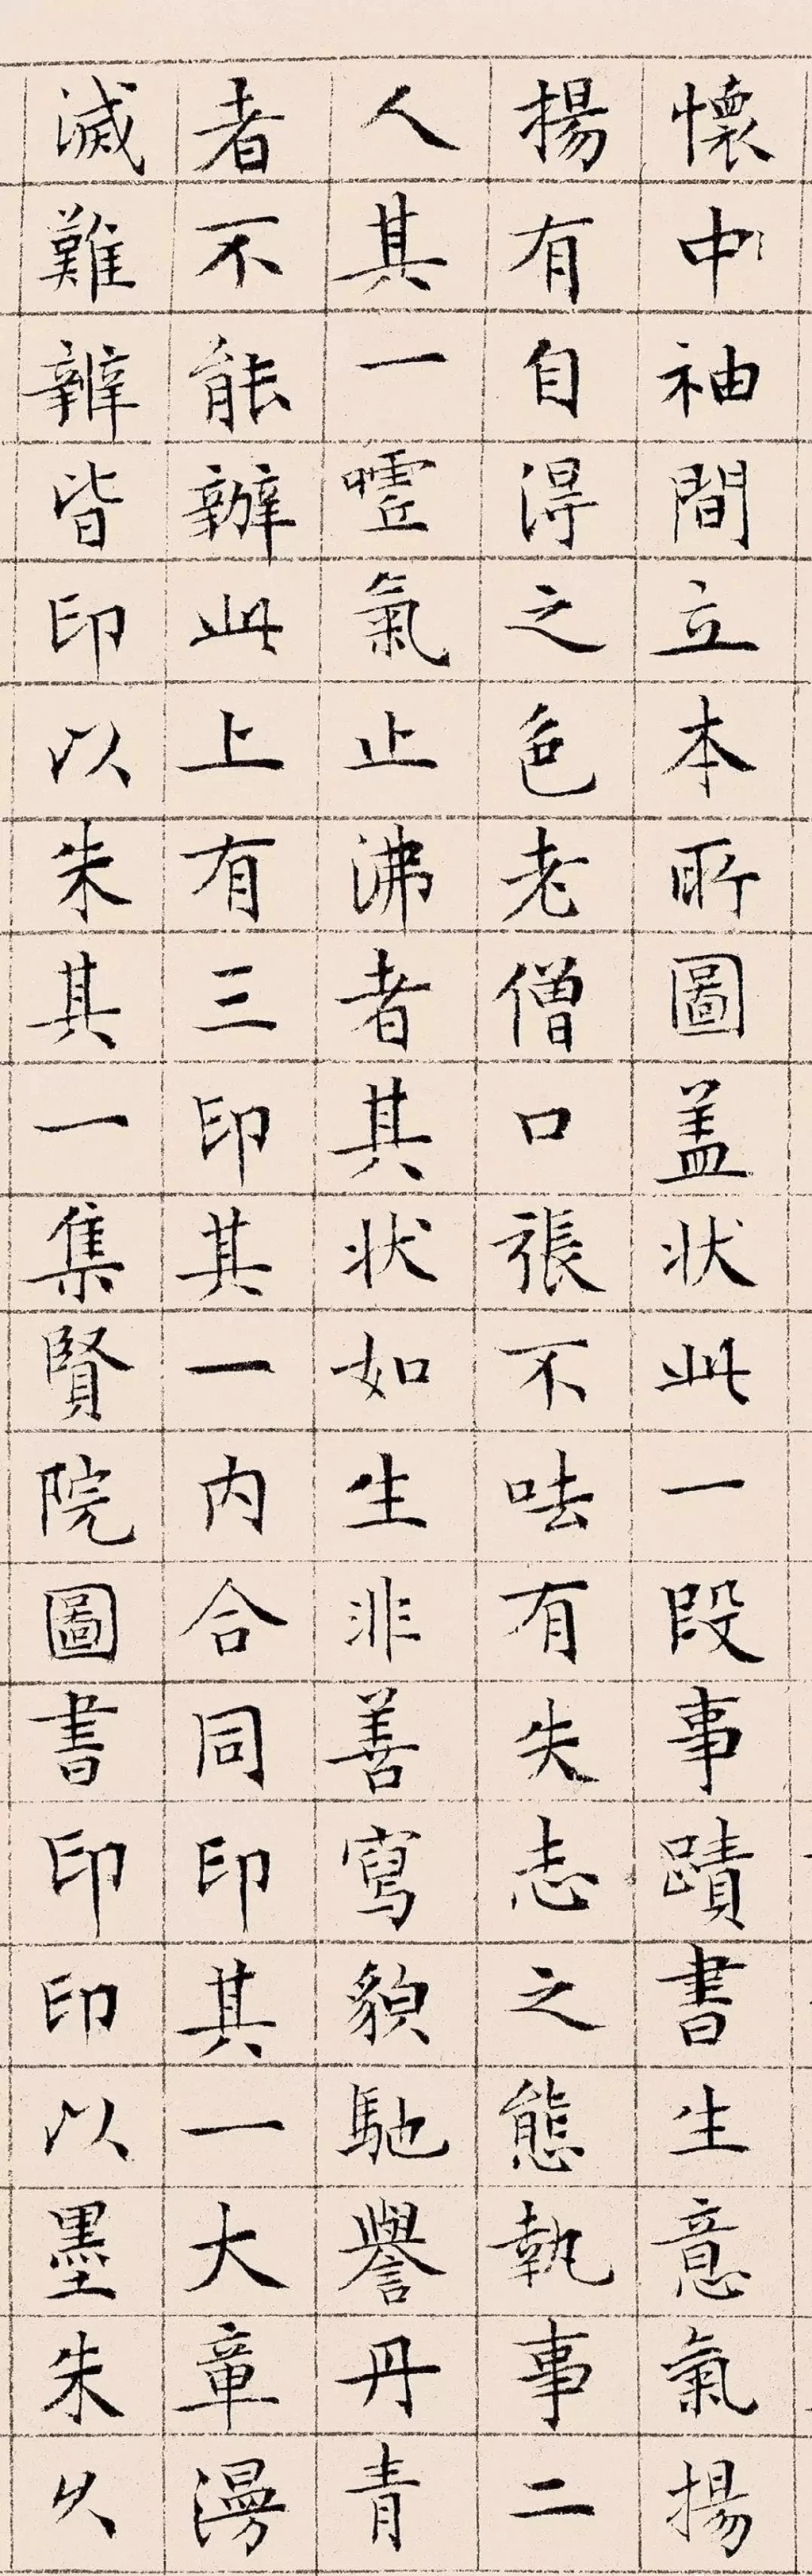 懷中袖間立本所圖蓋狀此一段事蹟書生意氣揚
揚有自得之色老僧口張不呿有失志之態執事二
人其一噓氣止沸者其狀如生非善寫貌馳譽丹青
者不能辦此上有三印其一内合同印其一大章漫
滅難辨皆印以朱其一集賢院圖書印印以墨朱久